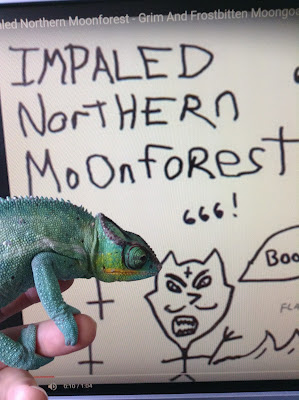 aled Northern Moonforest - Grim And Frostbitten Moongoa
IMPALED
NORTHERN
MOONFOREST
666!
Boo
FLA
0:10 / 1:04